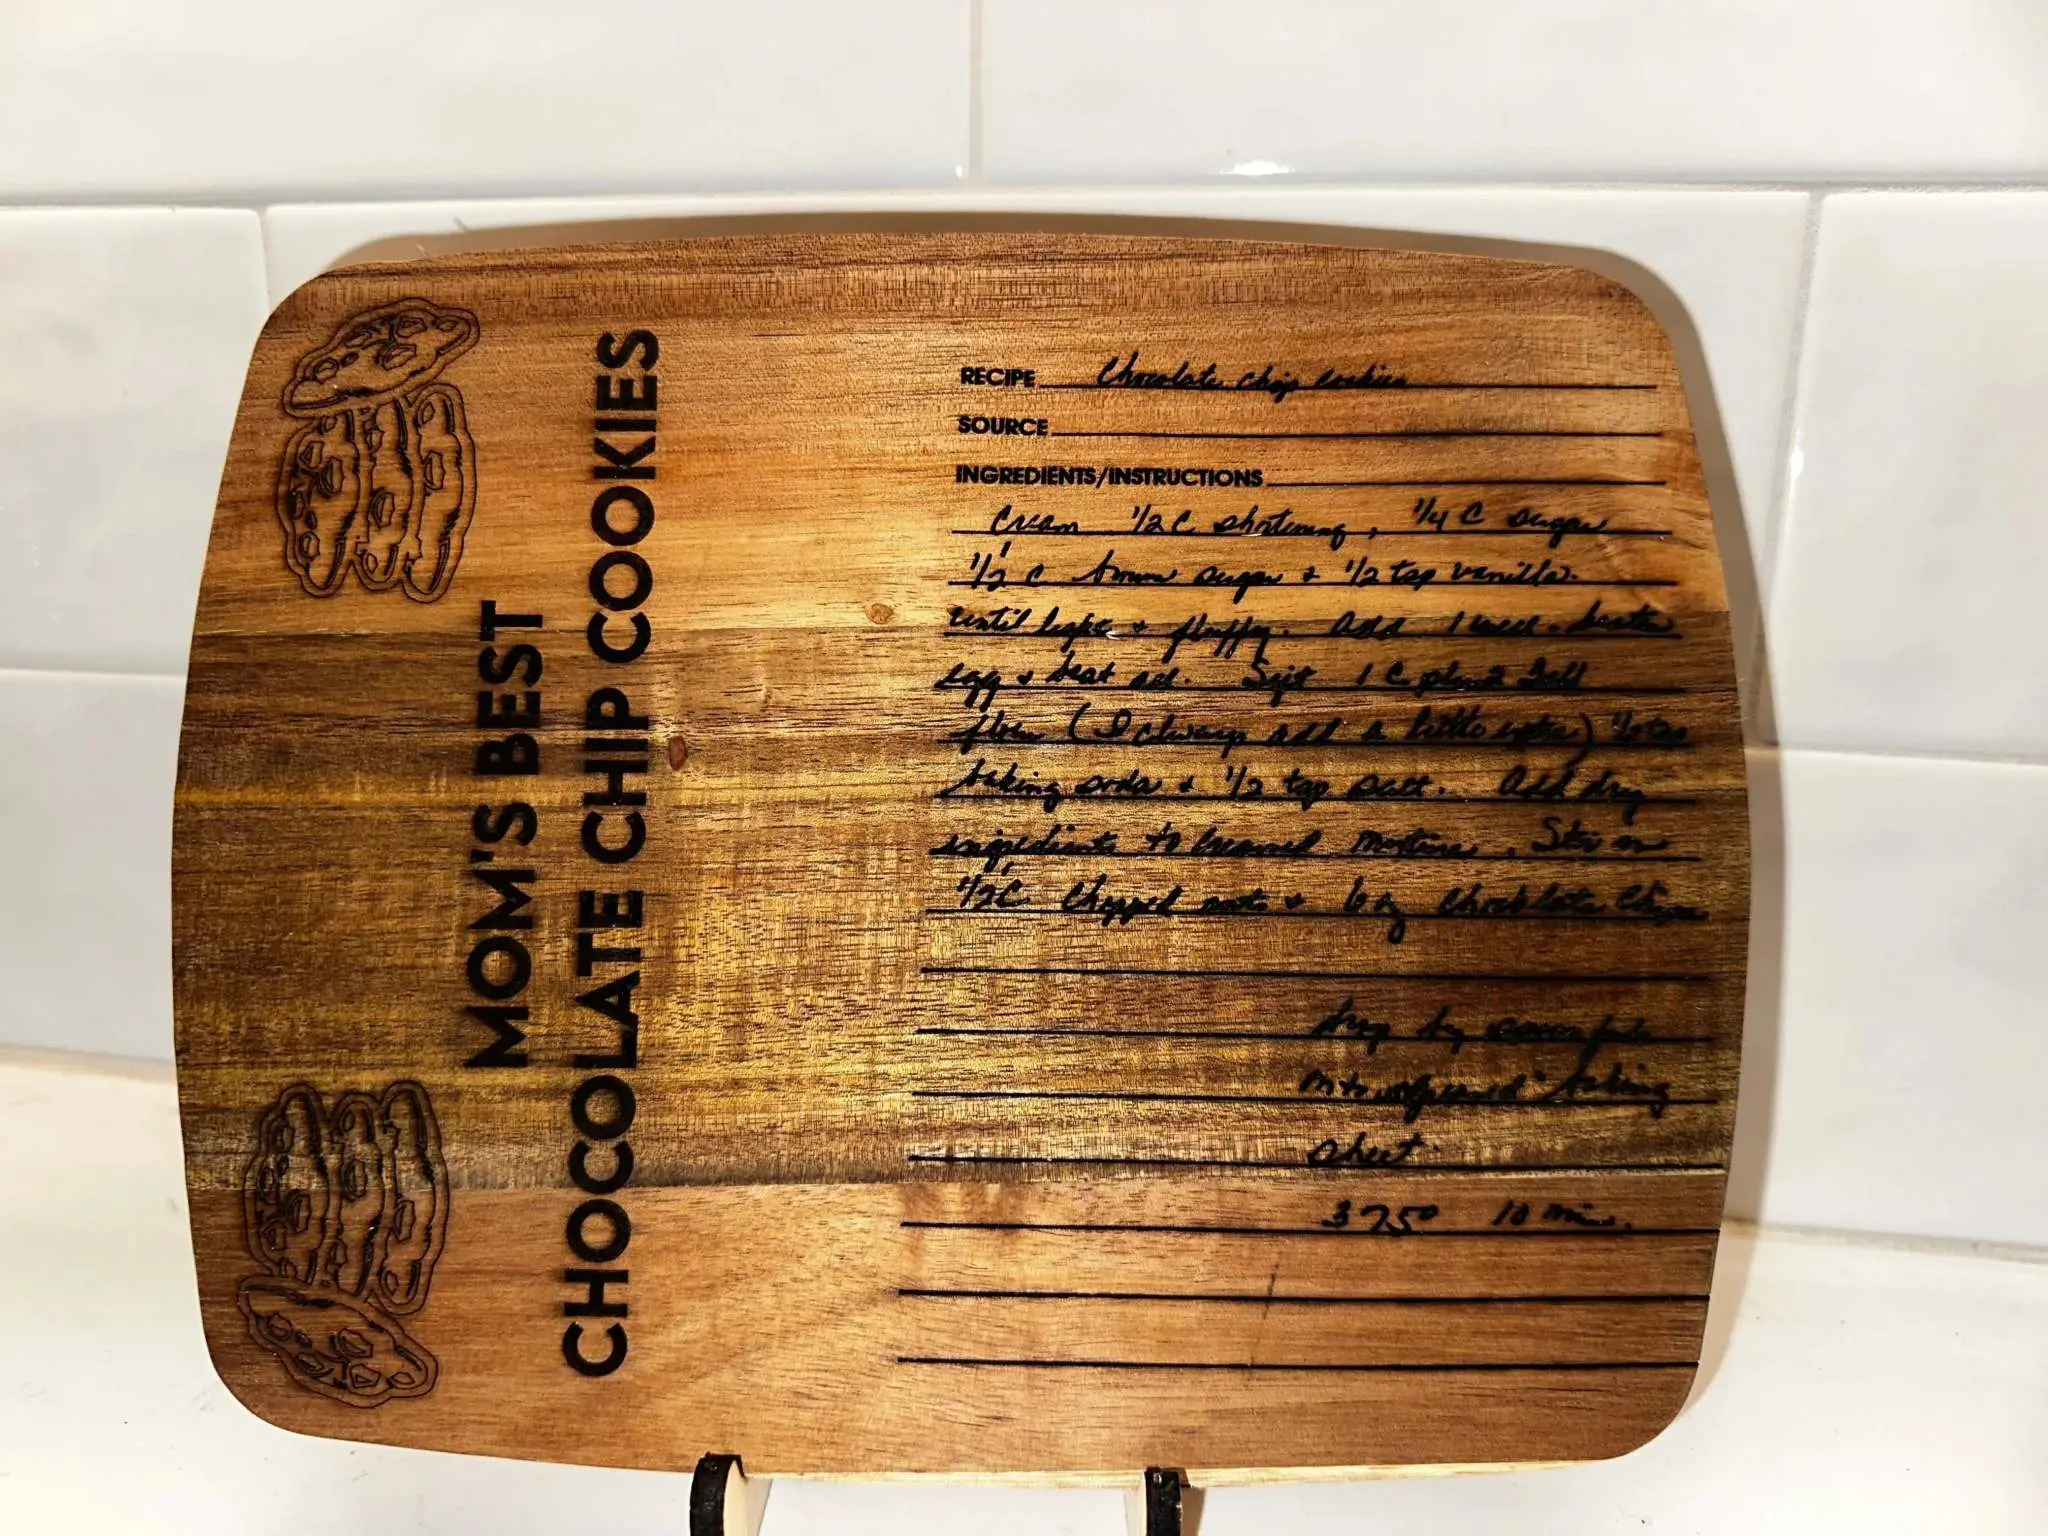 MOM'S BEST
CHOCOLATE CHIP COOKIES
RECIPE Chocolate chip cookies
SOURCE
INGREDIENTS/INSTRUCTIONS
Cream 1/2 C shortening, 1/4 C sugar
1/2 C brown sugar + 1/2 tsp vanilla.
until light + fluffy. Add 1 well-beaten
egg + beat all. Sift 1 C plus 2 Tbl
flour (I always add a little extra) 1/2 tsp
baking soda + 1/2 tsp salt. Add dry
ingredients to creamed mixture. Stir in
1/2 C Chopped nuts + 6 oz Chocolate Chips
drop by
baking
sheet.
375° 10 min.